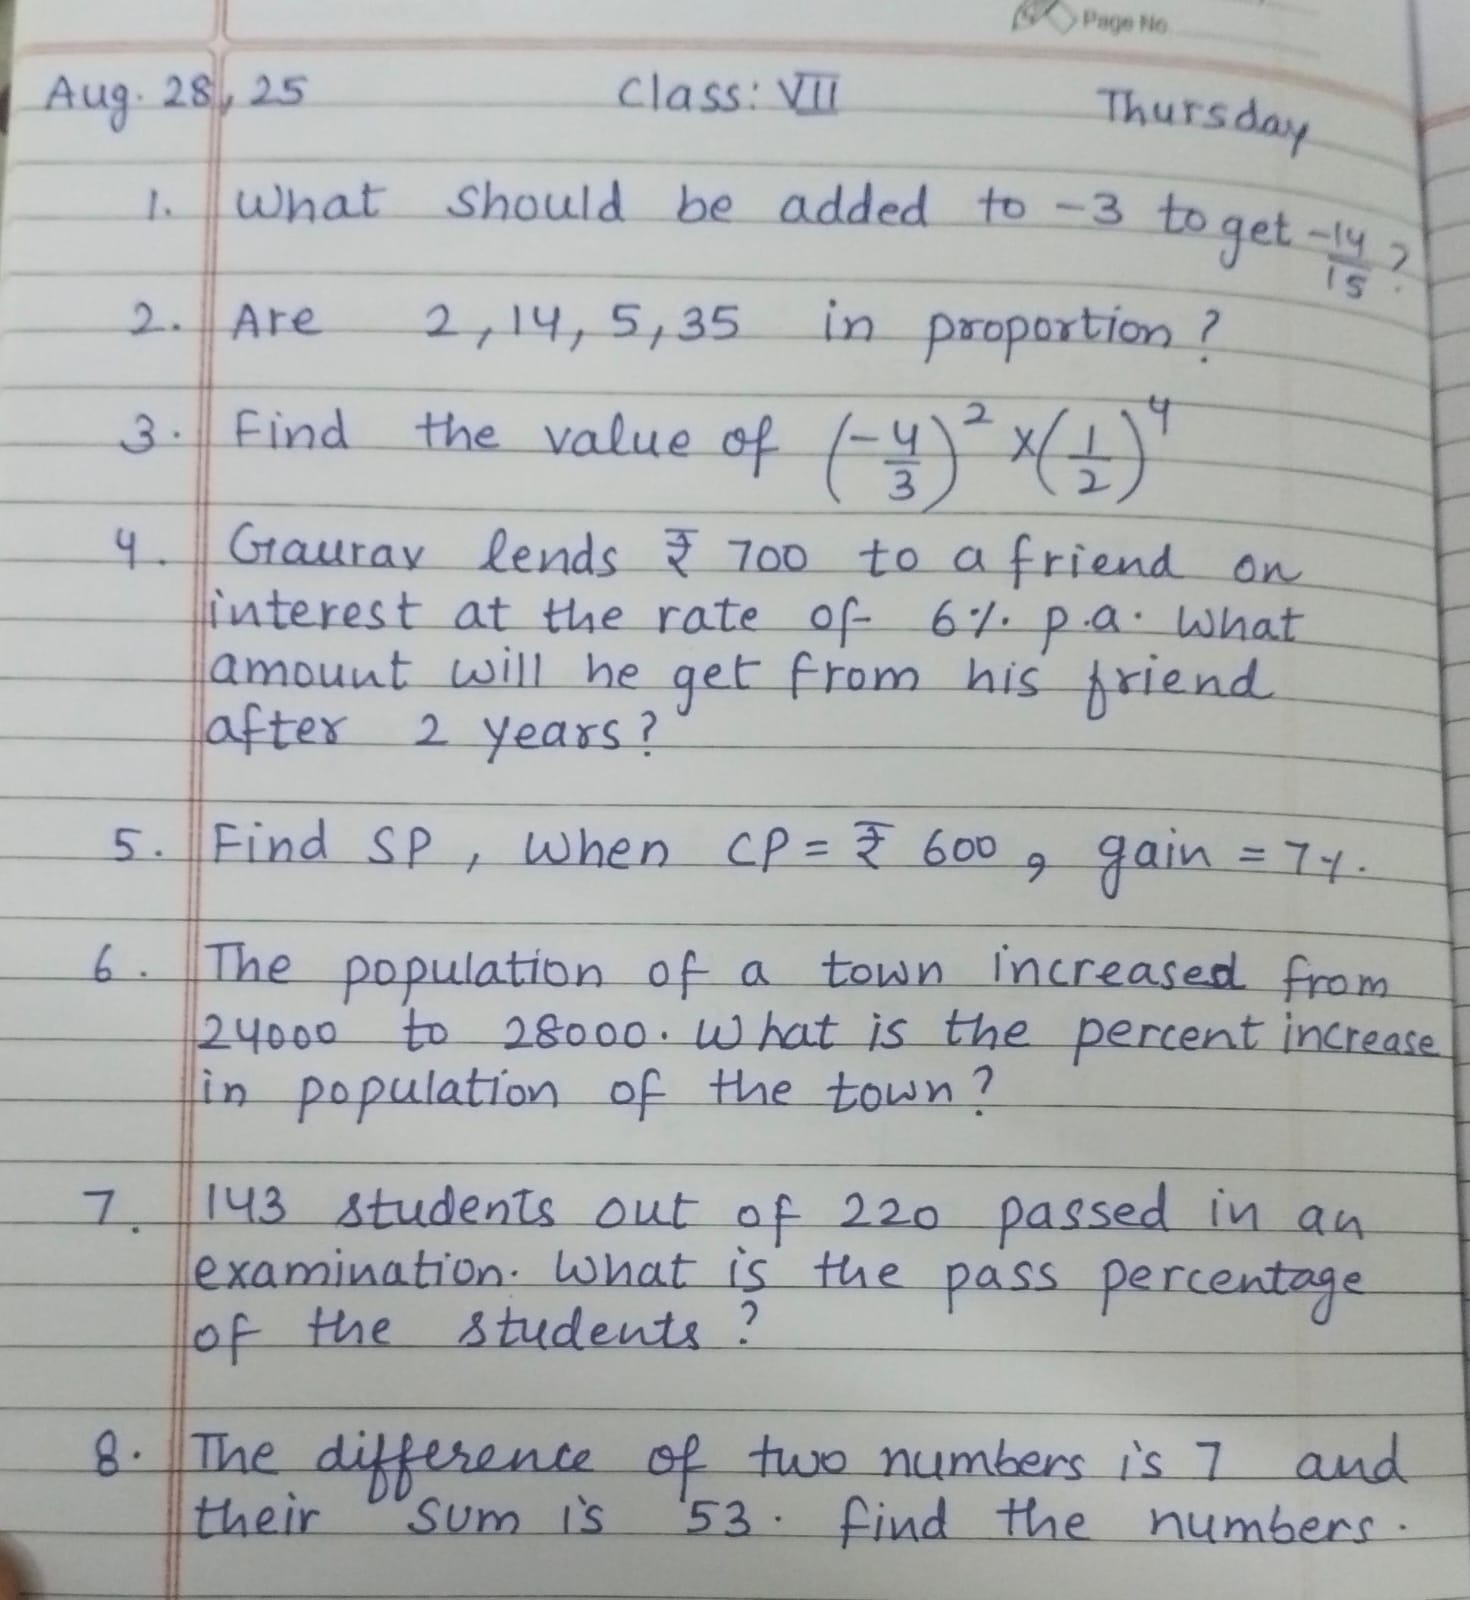 Page No
Aug. 28, 25 Class: VII Thursday
1. What should be added to -3 to get -14/15?
2. Are 2, 14, 5, 35 in proportion?
3. Find the value of (-4/3)² × (1/2)⁴
4. Gaurav lends ₹ 700 to a friend on
interest at the rate of 6% p.a. What
amount will he get from his friend
after 2 years?
5. Find SP, when CP = ₹ 600, gain = 7%.
6. The population of a town increased from
24000 to 28000. What is the percent increase
in population of the town?
7. 143 students out of 220 passed in an
examination. What is the pass percentage
of the students?
8. The difference of two numbers is 7 and
their sum is 53. find the numbers.